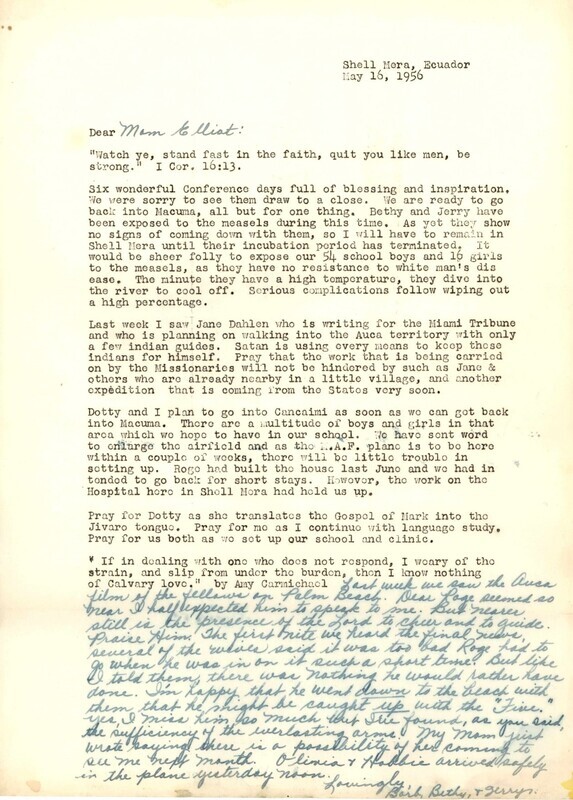 Shell Mera, Ecuador
May 16, 1956
Dear Mom Elliot:
"Watch ye, stand fast in the faith, quit you like men, be
strong." I Cor. 16:13.
Six wonderful Conference days full of blessing and inspiration.
We were sorry to see them draw to a close. We are ready to go
back into Macuma, all but for one thing. Bethy and Jerry have
been exposed to the measels during this time. As yet they show
no signs of coming down with them, so I will have to remain in
Shell Mera until their incubation period has terminated. It
would be sheer folly to expose our 54 school boys and 16 girls
to the measels, as they have no resistance to white man's dis
ease. The minute they have a high temperature, they dive into
the river to cool off. Serious complications follow wiping out
a high percentage.
Last week I saw Jane Dahlen who is writing for the Miami Tribune
and who is planning on walking into the Auca territory with only
a few indian guides. Satan is using every means to keep these
indians for himself. Pray that the work that is being carried
on by the Missionaries will not be hindered by such as Jane &
others who are already nearby in a little village, and another
expedition that is coming from the States very soon.
Dotty and I plan to go into Cancaimi as soon as we can get back
into Macuma. There are a multitude of boys and girls in that
area which we hope to have in our school. We have sent word
to enlarge the airfield and as the M.A.F. plane is to be here
within a couple of weeks, there will be little trouble in
setting up. Roge had built the house last June and we had in
tended to go back for short stays. However, the work on the
Hospital here in Shell Mera had held us up.
Pray for Dotty as she translates the Gospel of Mark into the
Jivaro tongue. Pray for me as I continue with language study.
Pray for us both as we set up our school and clinic.
" If in dealing with one who does not respond, I weary of the
strain, and slip from under the burden, then I know nothing
of Calvary love." by Amy Carmichael Last week we saw the Auca
film of the fellows on Palm Beach. Dear Roge seemed so
near I half expected him to speak to me. But nearer
still is the presence of the Lord to cheer and to guide.
Praise Him. The first nite we heard the final news,
several of the wives said it was too bad Roge had to
go when he was in on it such a short time. But like
I told them, there was nothing he would rather have
done. I'm happy that he went down to the beach with
them that he might be caught up with the "Five."
Yes, I miss him so much but I've found, as you said,
the sufficiency of the everlasting arms. My Mom just
wrote saying there is a possibility of her coming to
see me next month. Olinia & Robbie arrived safely
in the plane yesterday noon.
Lovingly
Barb, Bethy, & Jerry.